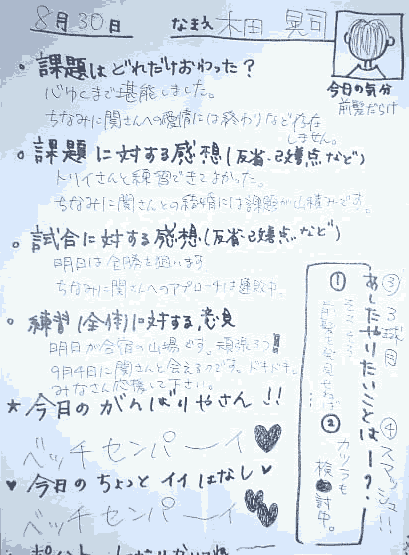 8月30日 なまえ 木田 晃司
今日の気分
前髪だらけ
課題はどれだけおわった?
心ゆくまで堪能しました。
ちなみに関さんへの愛情には終わりなど存在
しません。
課題に対する感想(反省・改善点など)
トリイさんと練習できてよかった。
ちなみに関さんとの結婚には課題が山積みです。
試合に対する感想(反省・改善点など)
明日は全勝を狙います
ちなみに関さんへのアプローチは連敗中。
練習(全体)に対する意見
明日が合宿の山場です。頑張ろう!!
9月4日に関さんと会えるのです。ドキドキ。
みなさん応援して下さい。
★今日のがんばりやさん!!
ベッチセンパーイ♥
♥今日のちょっとイイはなし♥
ベッチセンパーイ
あしたやりたいことはー?
①
② カツラも
検討中。
③ 3球目
④ スマッシュ!!